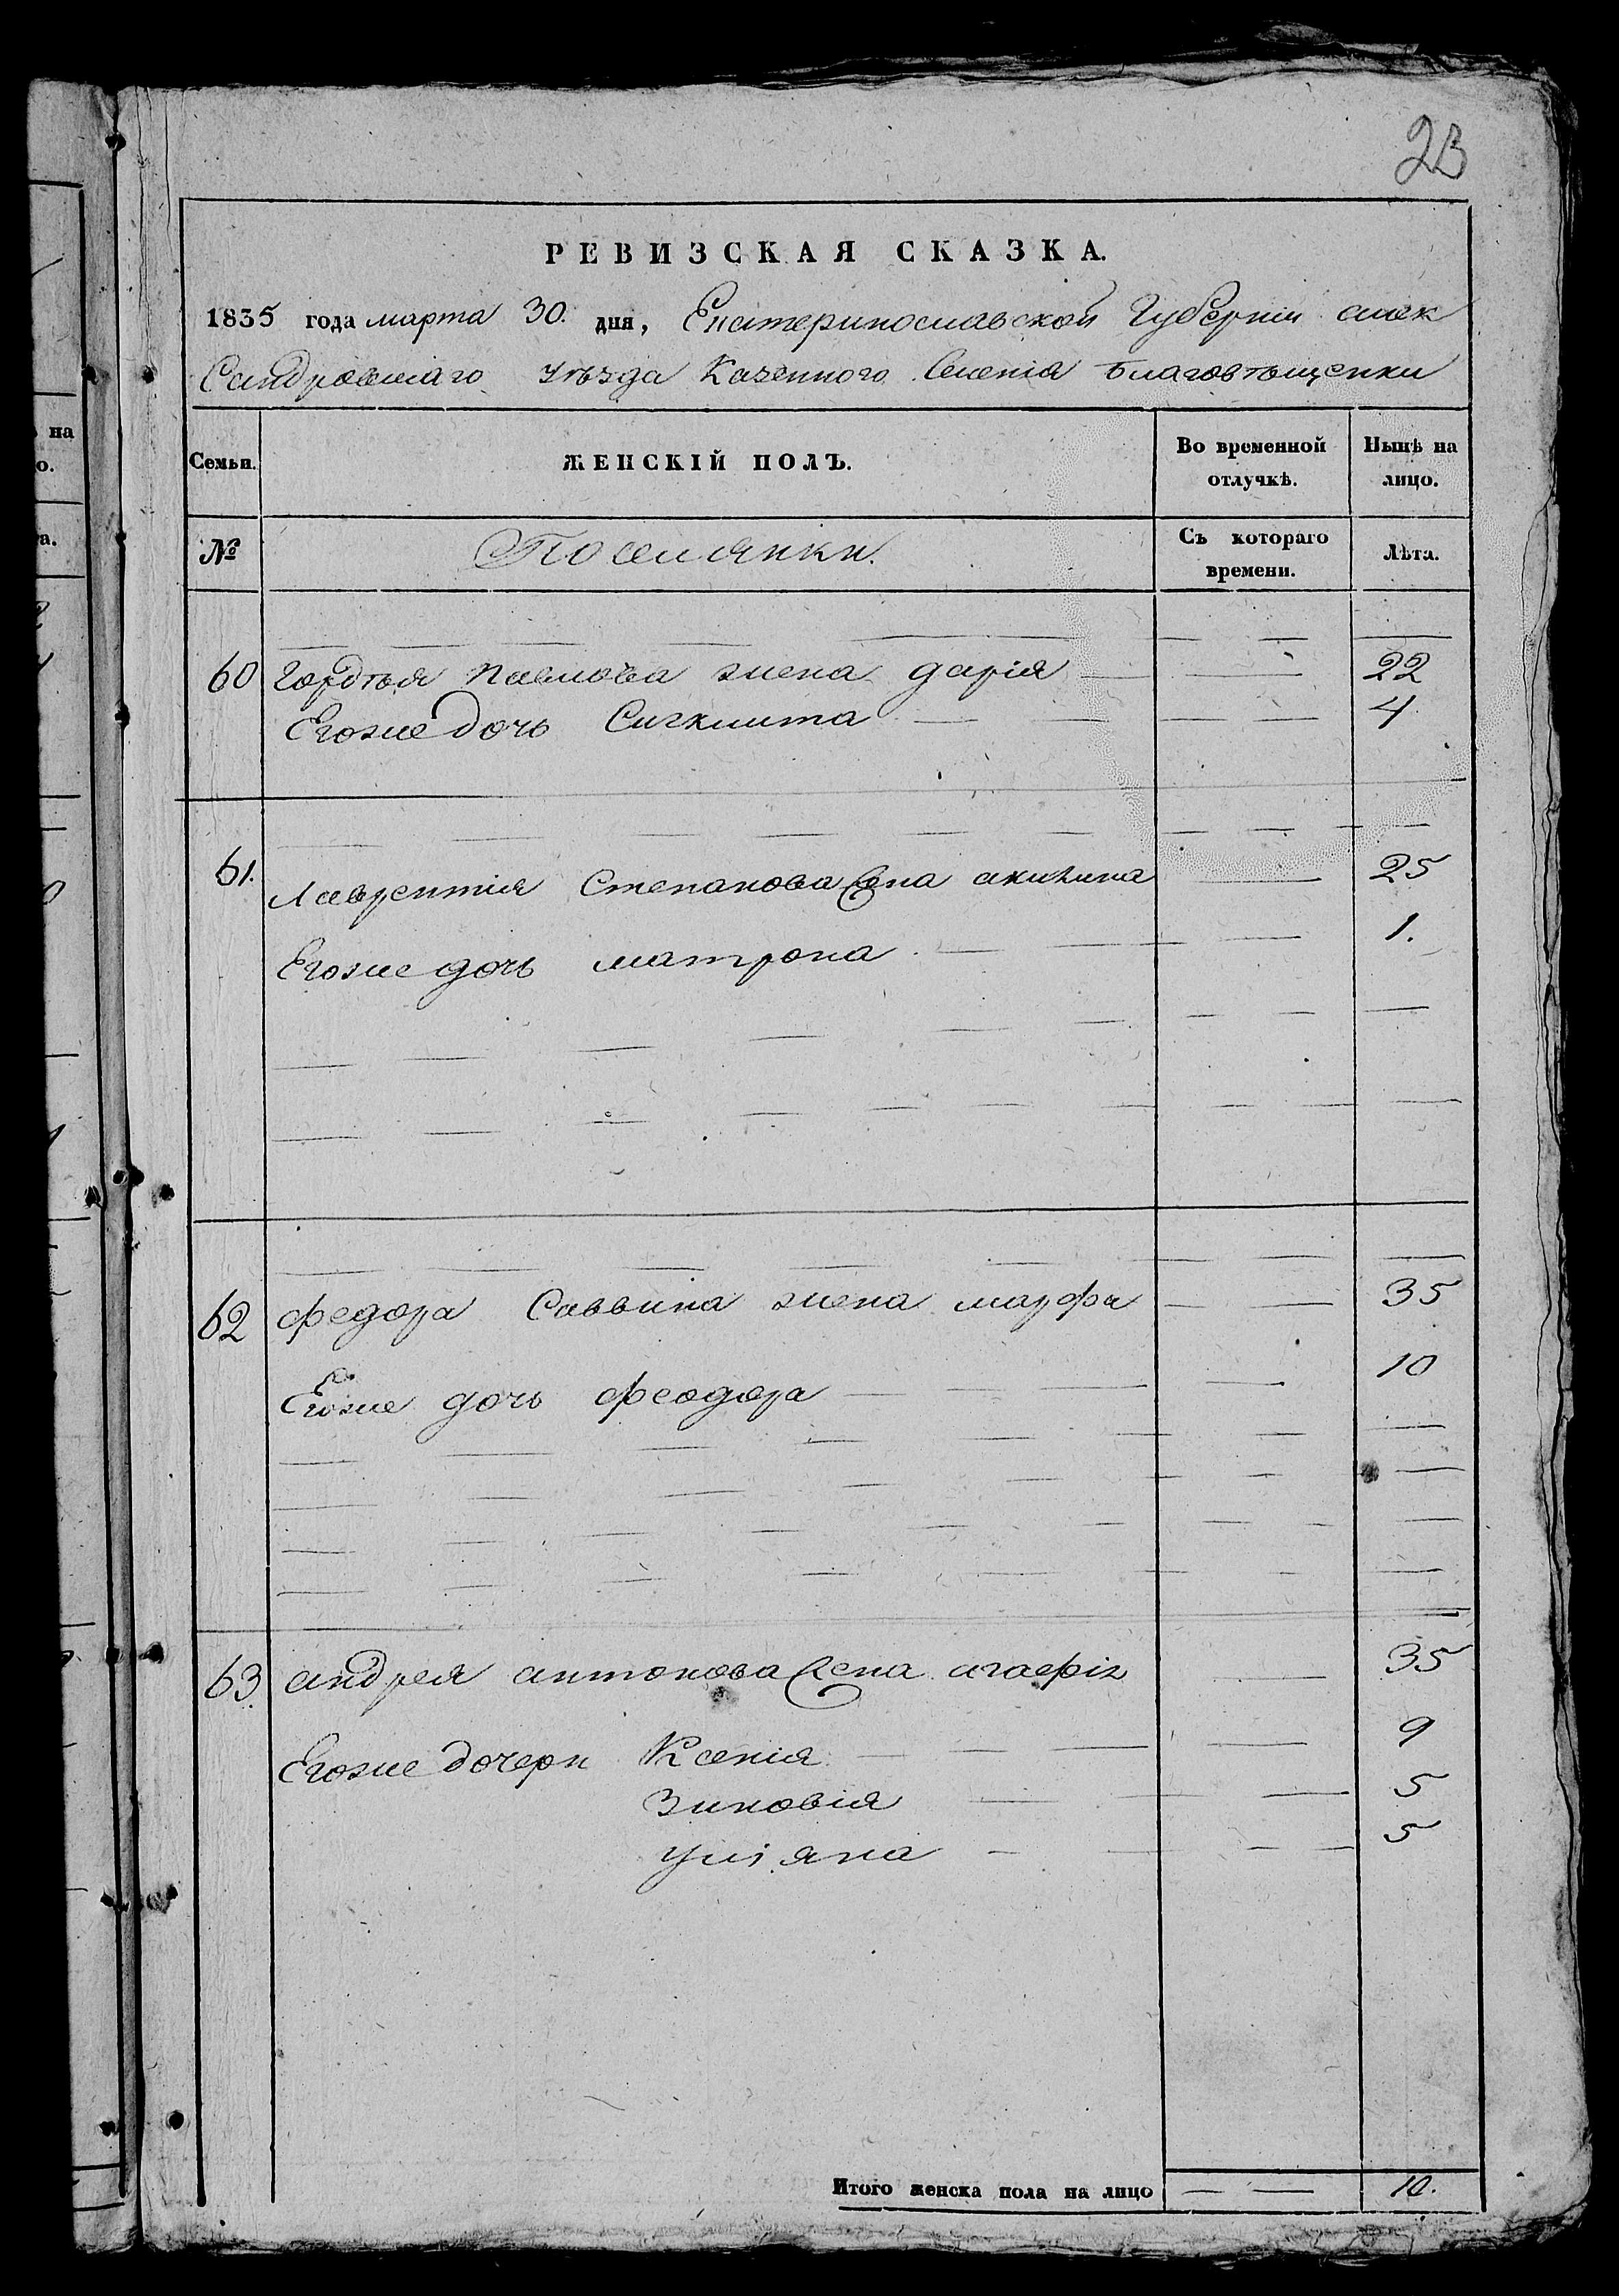 23
РЕВИЗСКАЯ СКАЗКА.
1835 года марта 30. дня, Екатеринославской Губернїи алек
Сандровскаго уѣзда Казенного Селенїя Благовѣщенки
Семьи. ЖЕНСКІЙ ПОЛЪ. Во временной отлучкѣ. Нынѣ на лицо.
№ Поселянки. Съ котораго времени. Лѣта.
60 Гордѣя Павлова жена дарїя 22
Егоже дочь 4
61. Лаврентїя Степанова жена акилина 25
Егоже дочь матрона 1.
62 федора Саввина жена марфа 35
Егоже дочь феодора 10
63. андрея антонова жена агафія 35
Егоже дочери Ксенїя 9
Зиновїя 5
улїяна 5
Итого женска пола на лицо 10.
на
о.
та.